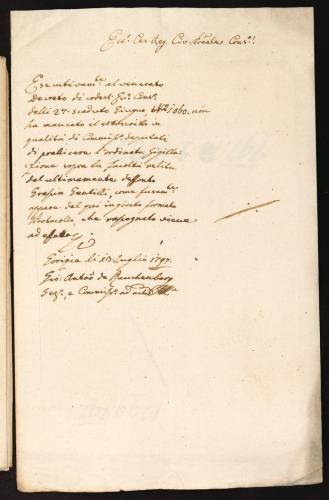 Ecc: Ces: Reg: Civ: Arciducle Cons:
Esecutivamte al venerato
Decreto di codest' Ecc: Cons:
delli 27. scaduto Giugno No 1060. non
ha mancato il sottoscritto in
qualità di Commiss: deputato
di pratticare l'ordinata Sigilla
zione sopra la facoltà relitta
del ultimamente defonto
Grasin Gentilli, come furente
appare dal qui ingiunto formato
Protocollo, che rassegnato viene
ad effetto
Gorizia li 13 Luglio 1797.
Gio: Anto: de
Seg:, e Commiss: ad